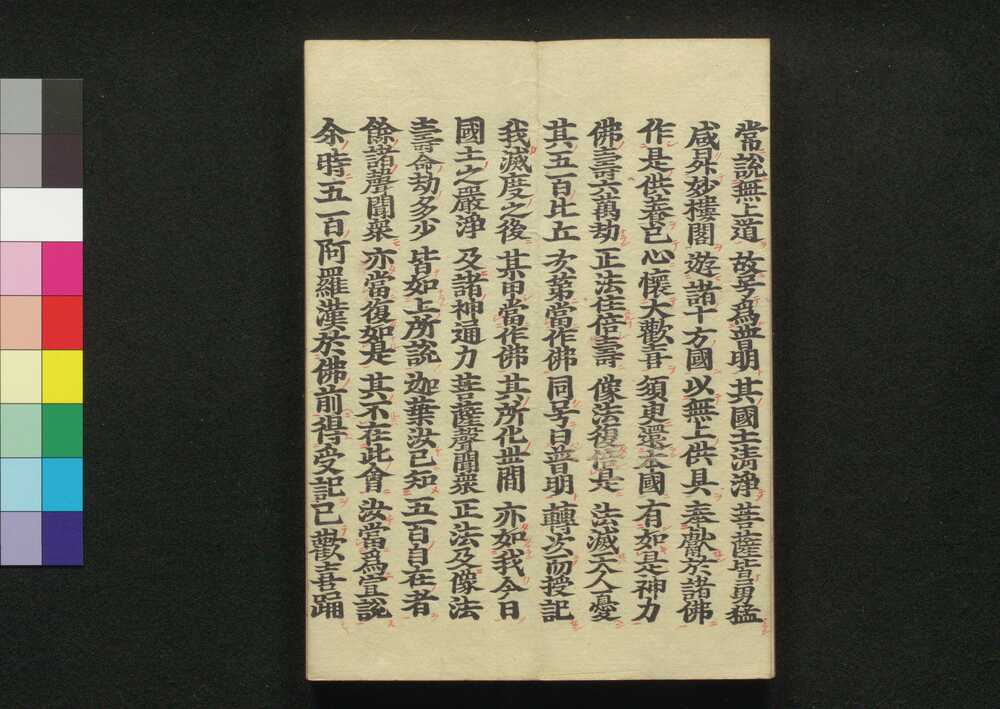 常說無上道 故号為普明 其國土清淨 菩薩皆勇猛
咸昇妙樓閣 遊諸十方國 以無上供具 奉獻於諸佛
作是供養已 心懷大歡喜 須臾還本國 有如是神力
佛壽六萬劫 正法住倍壽 像法復倍是 法滅天人憂
其五百比丘 次第當作佛 同号曰普明 轉次而授記
我滅度之後 某甲當作佛 其所化世間 亦如我今日
國土之嚴淨 及諸神通力 菩薩聲聞衆 正法及像法
壽命劫多少 皆如上所說 迦葉汝已知 五百自在者
餘諸聲聞衆 亦當復如是 其不在此會 汝當爲宣說
尒時五百阿羅漢於佛前得受記已歡喜踊